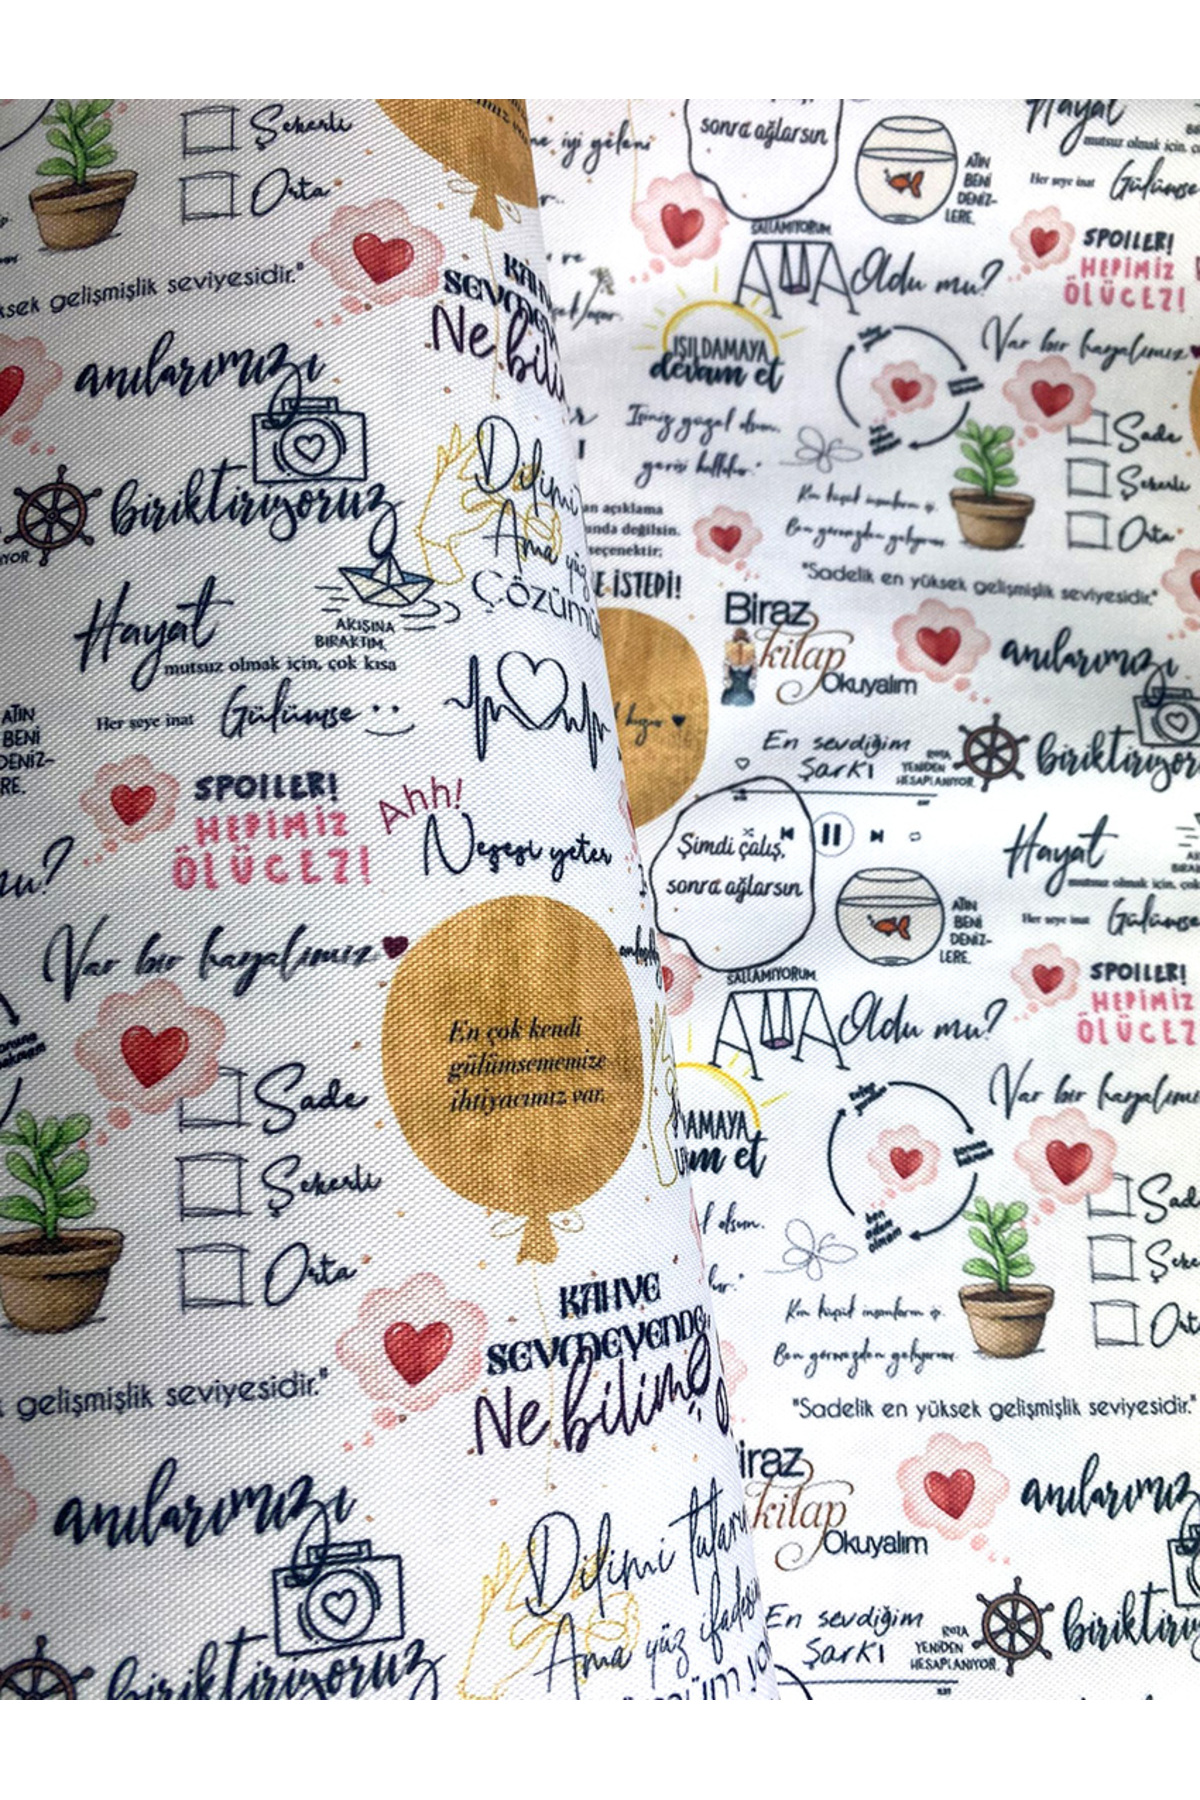 Şekerli
Orta
gelişmişlik seviyesidir."
anılarımızı
biriktiriyoruz
Hayat
mutsuz olmak için, çok kısa
Her şeye inat Gülümse
AKIŞINA
BIRAKTIM.
ATIN
BENİ
DENİZ-
RE.
SPOILER!
HEPİMİZ
ÖLÜCEZ!
Ahh!
Neşesi yeter
Var bir hayalimiz
Sade
Şekerli
Orta
En çok kendi
gülümsememize
ihtiyacımız var.
KAHVE
SEVMEYENDE
Ne bilim
gelişmişlik seviyesidir."
anılarımızı
biriktiriyoruz
Dilimi
Ama yüz
Çözüm
Dilimi tutarı
Ama yüz ifadesin
sonra ağlarsın
ATIN
BENİ
DENİZ-
LERE.
Hayat
mutsuz olmak için,
Her şeye inat Gülümse
SALLAMIYORUM.
Oldu mu?
SPOILER!
HEPİMİZ
ÖLÜCEZ!
IŞILDAMAYA
devam et
Var bir hayalimiz
İşiniz güzel olsun.
Sade
Şekerli
Orta
açıklama
değilsin.
seçenektir;
E İSTEDİ!
"Sadelik en yüksek gelişmişlik seviyesidir."
Biraz
kitap
Okuyalım
anılarımızı
En sevdiğim
Şarkı
ROTA
YENİDEN
HESAPLANIYOR.
biriktiriyoru
Şimdi çalış,
sonra ağlarsın
ATIN
BENİ
DENİZ-
LERE.
Hayat
Her şeye inat Gülümse
SALLAMIYORUM.
Oldu mu?
SPOILER!
HEPİMİZ
ÖLÜCEZ
AMAYA
m et
Var bir hayalimi
ben
adam
olmam
Sad
Şeke
"Sadelik en yüksek gelişmişlik seviyesidir."
iraz
kitap
Okuyalım
anılarımız
En sevdiğim
Şarkı
ROTA
YENİDEN
HESAPLANIYOR.
biriktiriy